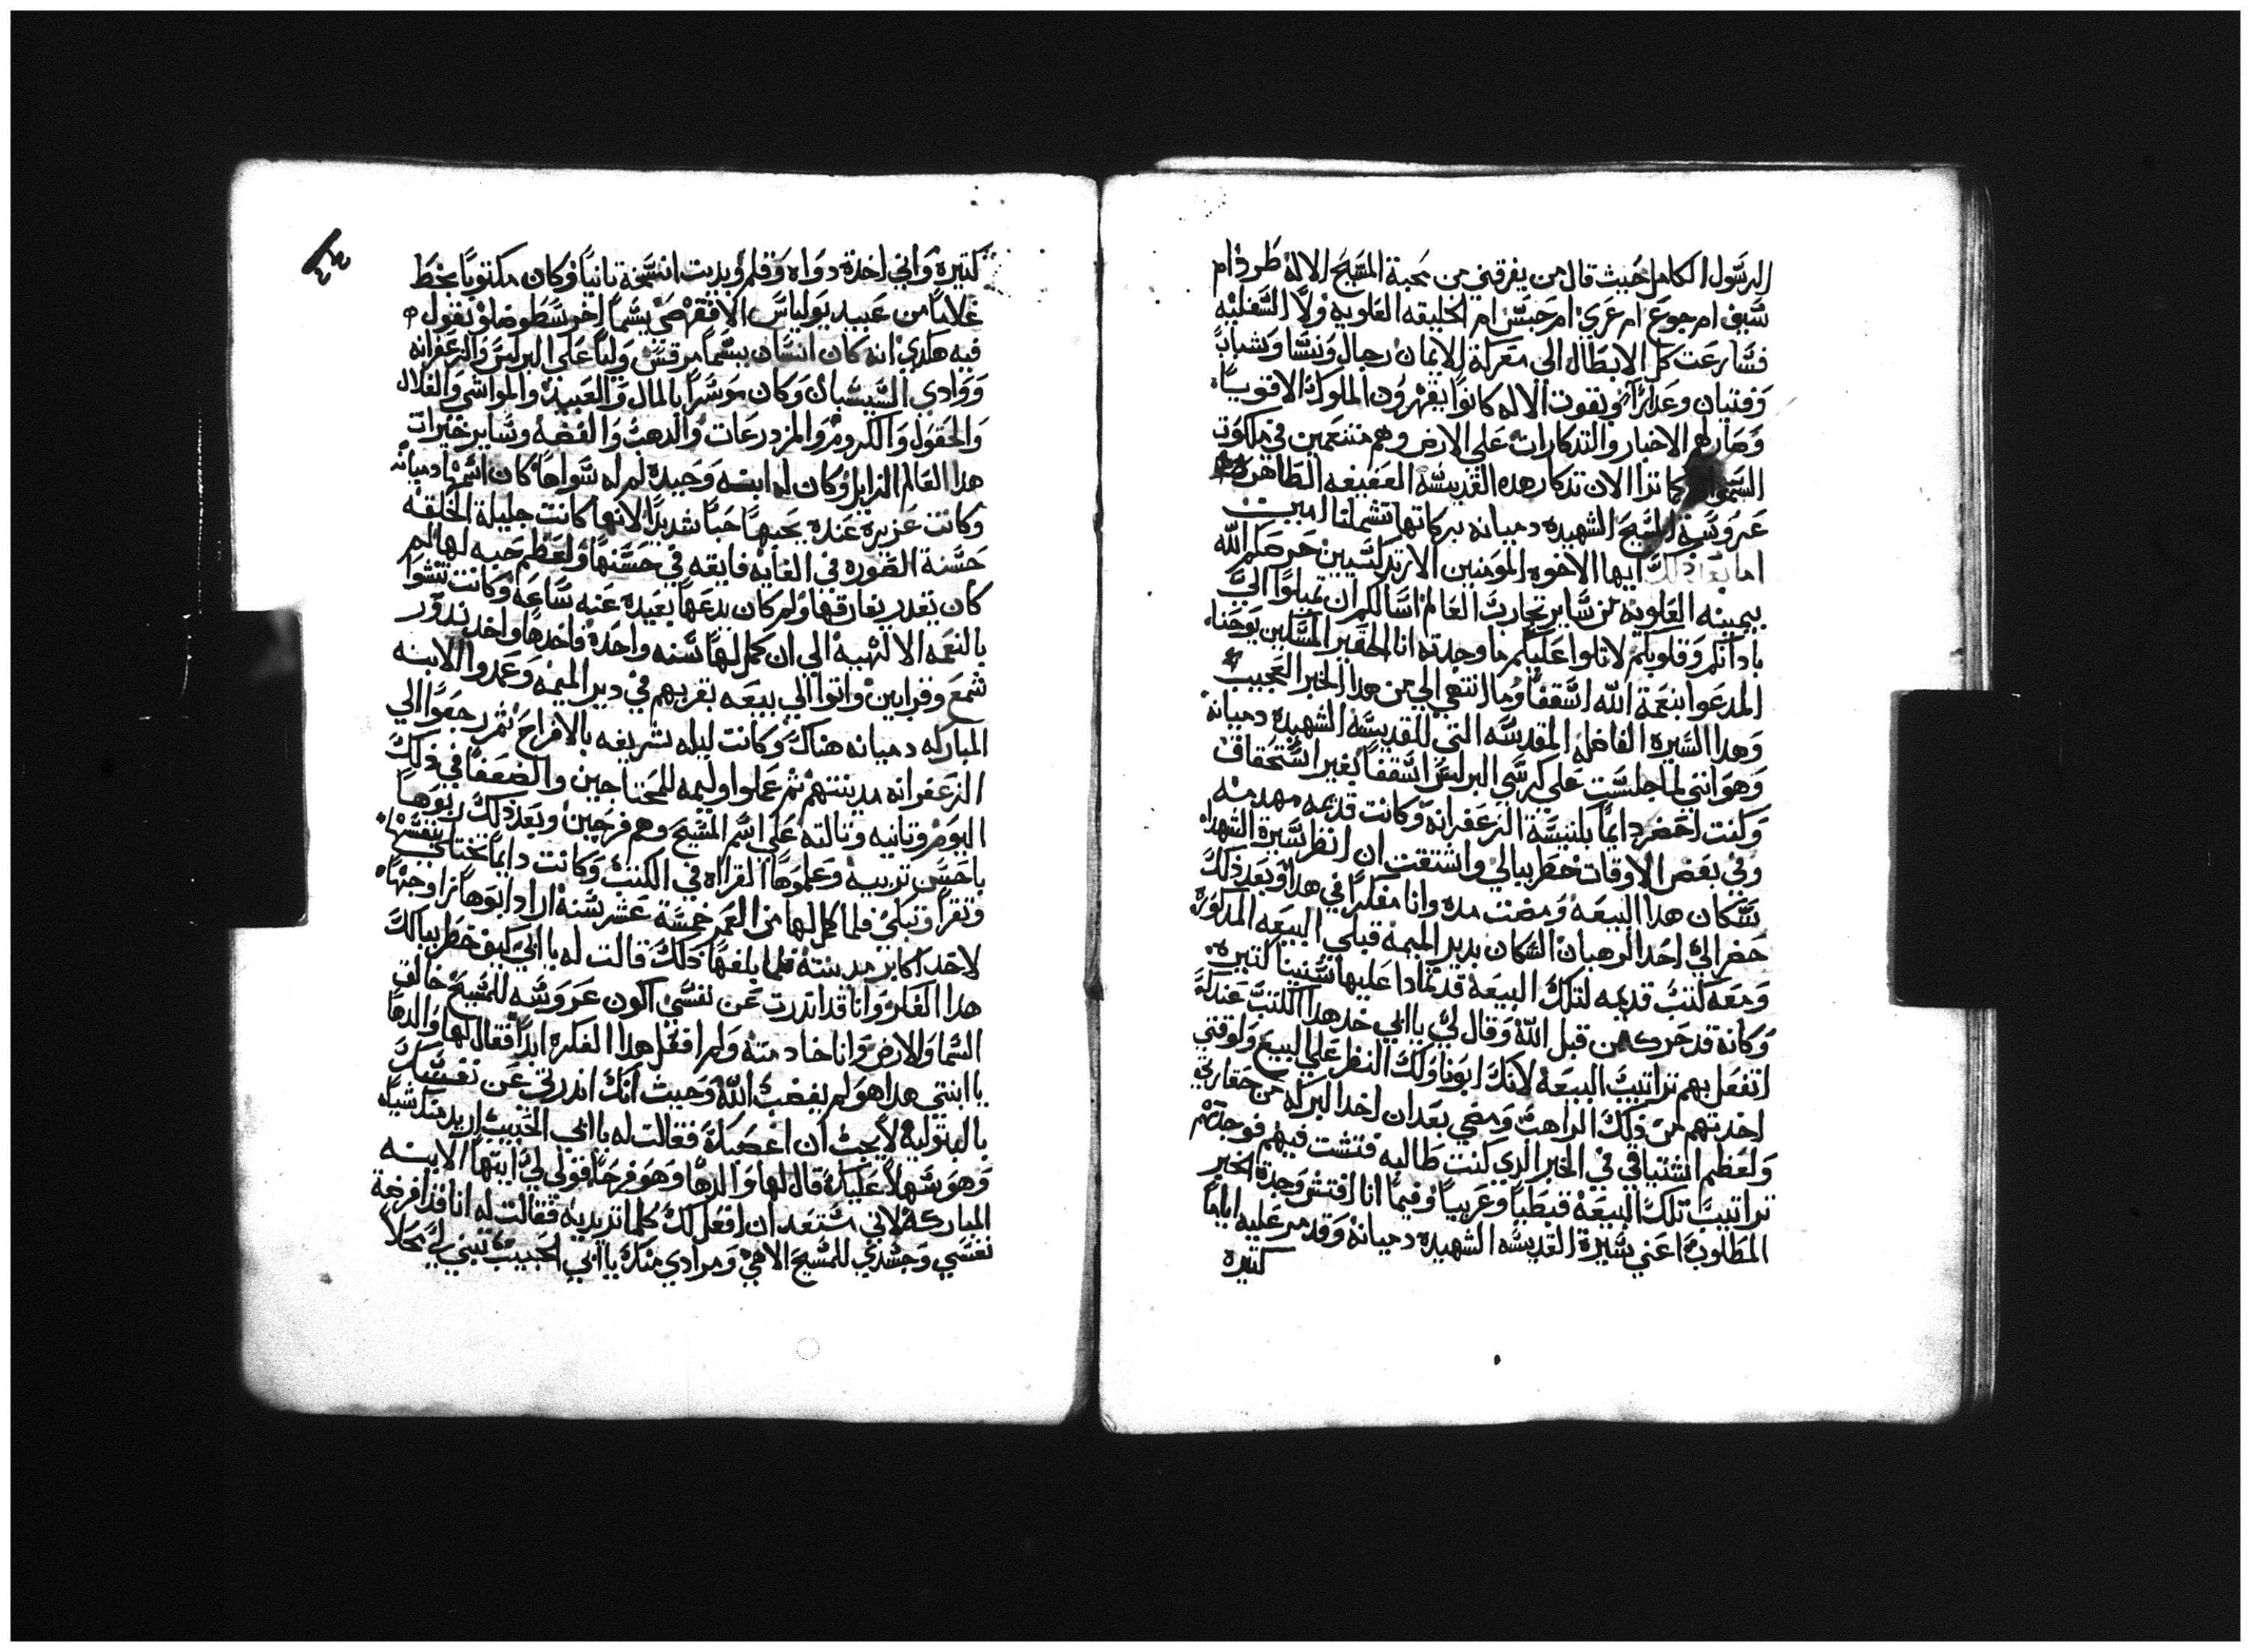 الرسول الكامل حيث قال من يفرقني من محبة المسيح الاله طرد ام
سيف ام جوع ام عري ام حبس ام الخليقه العلويه ولا السفليه
فتسارعت كل الابطال الي معركة الايمان رجال ونسا وشباب
وفتيان وعدارا وبقوت الاله كانوا يقهرون الملوك الاقويا
وصار لهم الاخبار والتدكارات علي الارض وهم متنعمين في ملكوت
السموات كما ترا الان تدكار هده القديسه العفيفه الطاهره
عروسة المسيح الشهيده دميانه بركاتها تشملنا امين
اما بعد دلك ايها الاخوه المومنين الارتدكسيين حرصكم الله
بيمينه العلويه من ساير تجارب العالم اسالكم ان تميلوا الي
بادانكم وقلوبكم لاتلوا عليكم ما وجدته انا الحقير المسكين يوحنا
المدعوا بنعمة الله اسقفا وما انتهي الي من هدا الخبر العجيب
وهدا السيرة الفاضله المقدسه التي للقديسه الشهيده دميانه
وهو انني لما جلست علي كرسي البرلس اسقفا بغير استحقاق
وكنت احضر دايما بكنيسة الزعفرانه وكانت قديمه مهدمه
وفي بعض الاوقات خطر ببالي واشتقت ان انظر سيرة الشهدا
سكان هدا البيعه ومضت مده وانا مفكرا في هدا وبعد ذلك
حضر الي احد الرهبان السكان بدير الميمه قبلي البيعه المدكوره
ومعه كتب قديمه لتلك البيعة قد تمادا عليها سنينا كتيره
وكانه قد حركه من قبل الله وقال لي يا ابي خد هدا الكتب عندك
اتفعل بهم تراتيب البيعة لانك ابونا ولك النظر علي البيع ولوقتي
اخدتهم من ذلك الراهب ومضي بعد ان اخد البركه من حقارتي
ولعظم اشتياقي في الخبر الدي كنت طالبه فتشت فيهم فوجدتهم
تراتيب تلك البيعة قبطيا وعربيا وفيما انا افتش وجدة الخبر
المطلوب اعني سيرة القديسه الشهيده دميانة وقد مر عليه اياما
كتيره
٤٤
كتيرة واني اخدة دواه وقلم وبديت انسخة تانيا وكان مكتوبا بخط
غلاما من عبيد يولياس الاقفهصي يسما اخرسطوضلو يقول
فيه هكدي انه كان انسان يسما مرقس واليا علي البرلس والزعفرانه
ووادي السيسبان وكان موسرا بالمال والعبيد والمواشي والغلال
والحقول والكروم والمزدرعات والدهب والفضه وساير خيرات
هدا العالم الزايل وكان له ابنه وحيدة لم له سواها كان اسمها دميانه
وكانت عزيزة عنده يحبها حبا شديدا لانها كانت جليلة الخلقه
حسنة الصوره في الغايه فايقه في حسنها ولعظم حبه لها لم
كان يقدر يفارقها ولم كان يدعها بعيده عنه ساعه وكانت تنشوا
بالنعمه الالهيه الي ان كمل لها سنه واحده فاخدها واخد ندور
شمع وقرابين واتوا الي بيعه بقربهم في دير الميمه وعمدوا الابنه
المباركه دميانه هناك وكانت ليله شريفه بالافراح ثم رجعوا الي
الزعفرانه مدينتهم ثم عملوا وليمه للمحتاجين والضعفا في ذلك
اليوم وتانيه وتالته علي اسم المسيح وهم فرحين وبعد دلك ربوها
باحسن تربيه وعلموها القراه في الكتب وكانت دايما تختلي بنفسها
وتقرا وتبكي فلما كمل لها من العمر خمسة عشر سنة اراد ابوها زواجها
لاحد اكابر مدينته فلما بلغها ذلك قالت له يا ابي كيف خطر ببالك
هدا الفكر وانا قد اندرت عن نفسي اكون عروسه للمسيح خالق
السما والارض وانا خادمته ولم افعل هدا الفكره ابدا فقال لها والدها
يا ابنتي هدا هو لم يغضب الله وحيث انك اندرتي عن نفسك
بالبتوليه لا يجب ان اغصبك فقالت له يا ابي الحبيب اريد منك شيا
وهو سهلا عليك قال لها والدها وهو فرحا قولي لي ايتها الابنه
المباركة لاني مستعد ان افعل لك كلما تريديه فقالت له انا قد افرضة
نفسي وجسدي للمسيح الاهي ومرادي منك يا ابي الحبيب تبني لي محلا